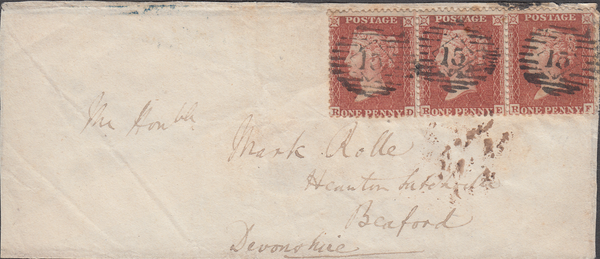 POSTAGE POSTAGE POSTAGE
15 15 15
R ONE PENNY D R ONE PENNY E R ONE PENNY F
The Honble
Mark Rolle
Heanton
Beaford
Devonshire